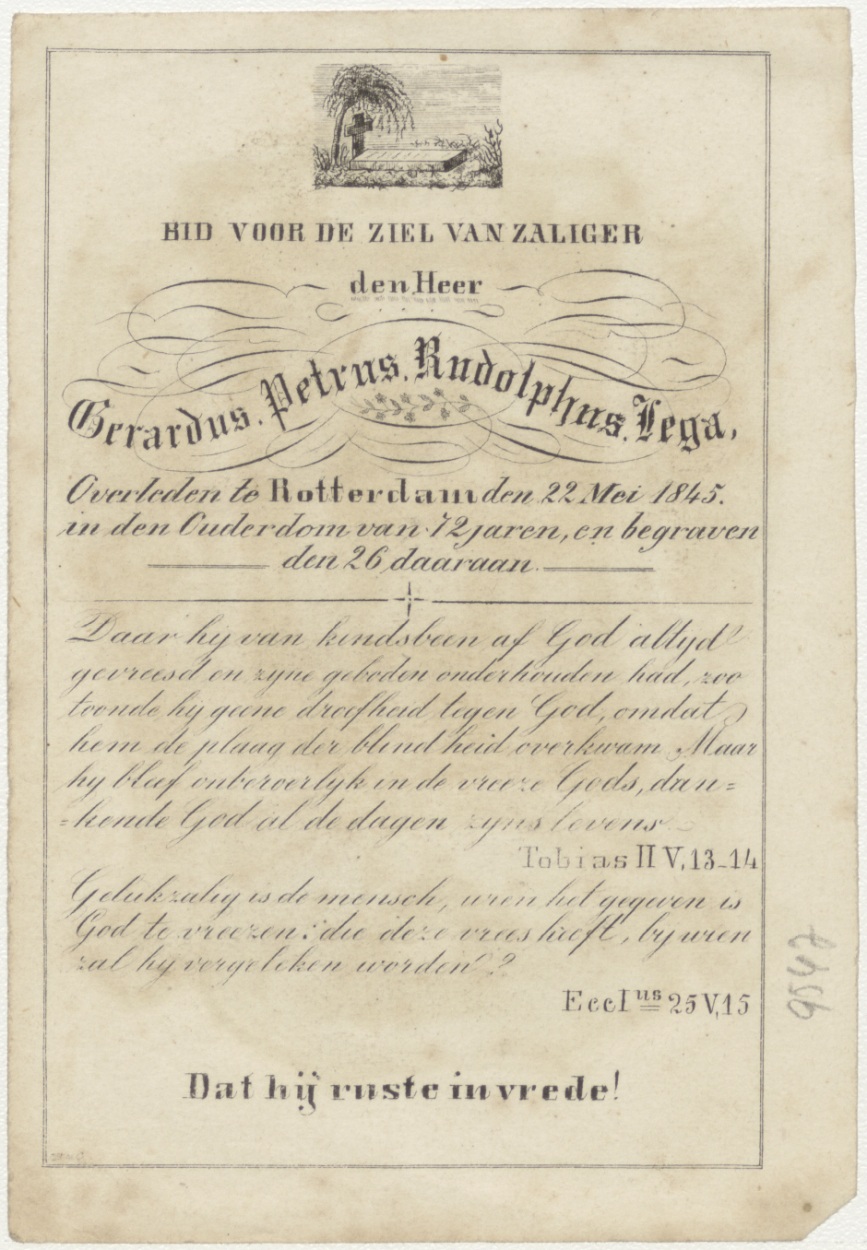 BID VOOR DE ZIEL VAN ZALIGER
den Heer
Gerardus. Petrus. Rudolphus. Lega,
Overleden te Rotterdam den 22 Mei 1845.
in den Ouderdom van 72 jaren, en begraven
den 26 daaraan.
Daar hy van kindsbeen af God altyd
gevreesd en zyne geboden onderhouden had, zoo
toonde hy geene droefheid tegen God, omdat
hem de plaag der blindheid overkwam Maar
hy bleef onberoerlyk in de vreeze Gods, dan=
=kende God al de dagen zyns levens
Tobias II V, 13-14
Gelukzalig is de mensch, wien het gegeven is
God te vreezen: die deze vrees heeft, by wien
zal hy vergeleken worden?
Eccl us 25 V, 15
Dat hij ruste in vrede!
9547